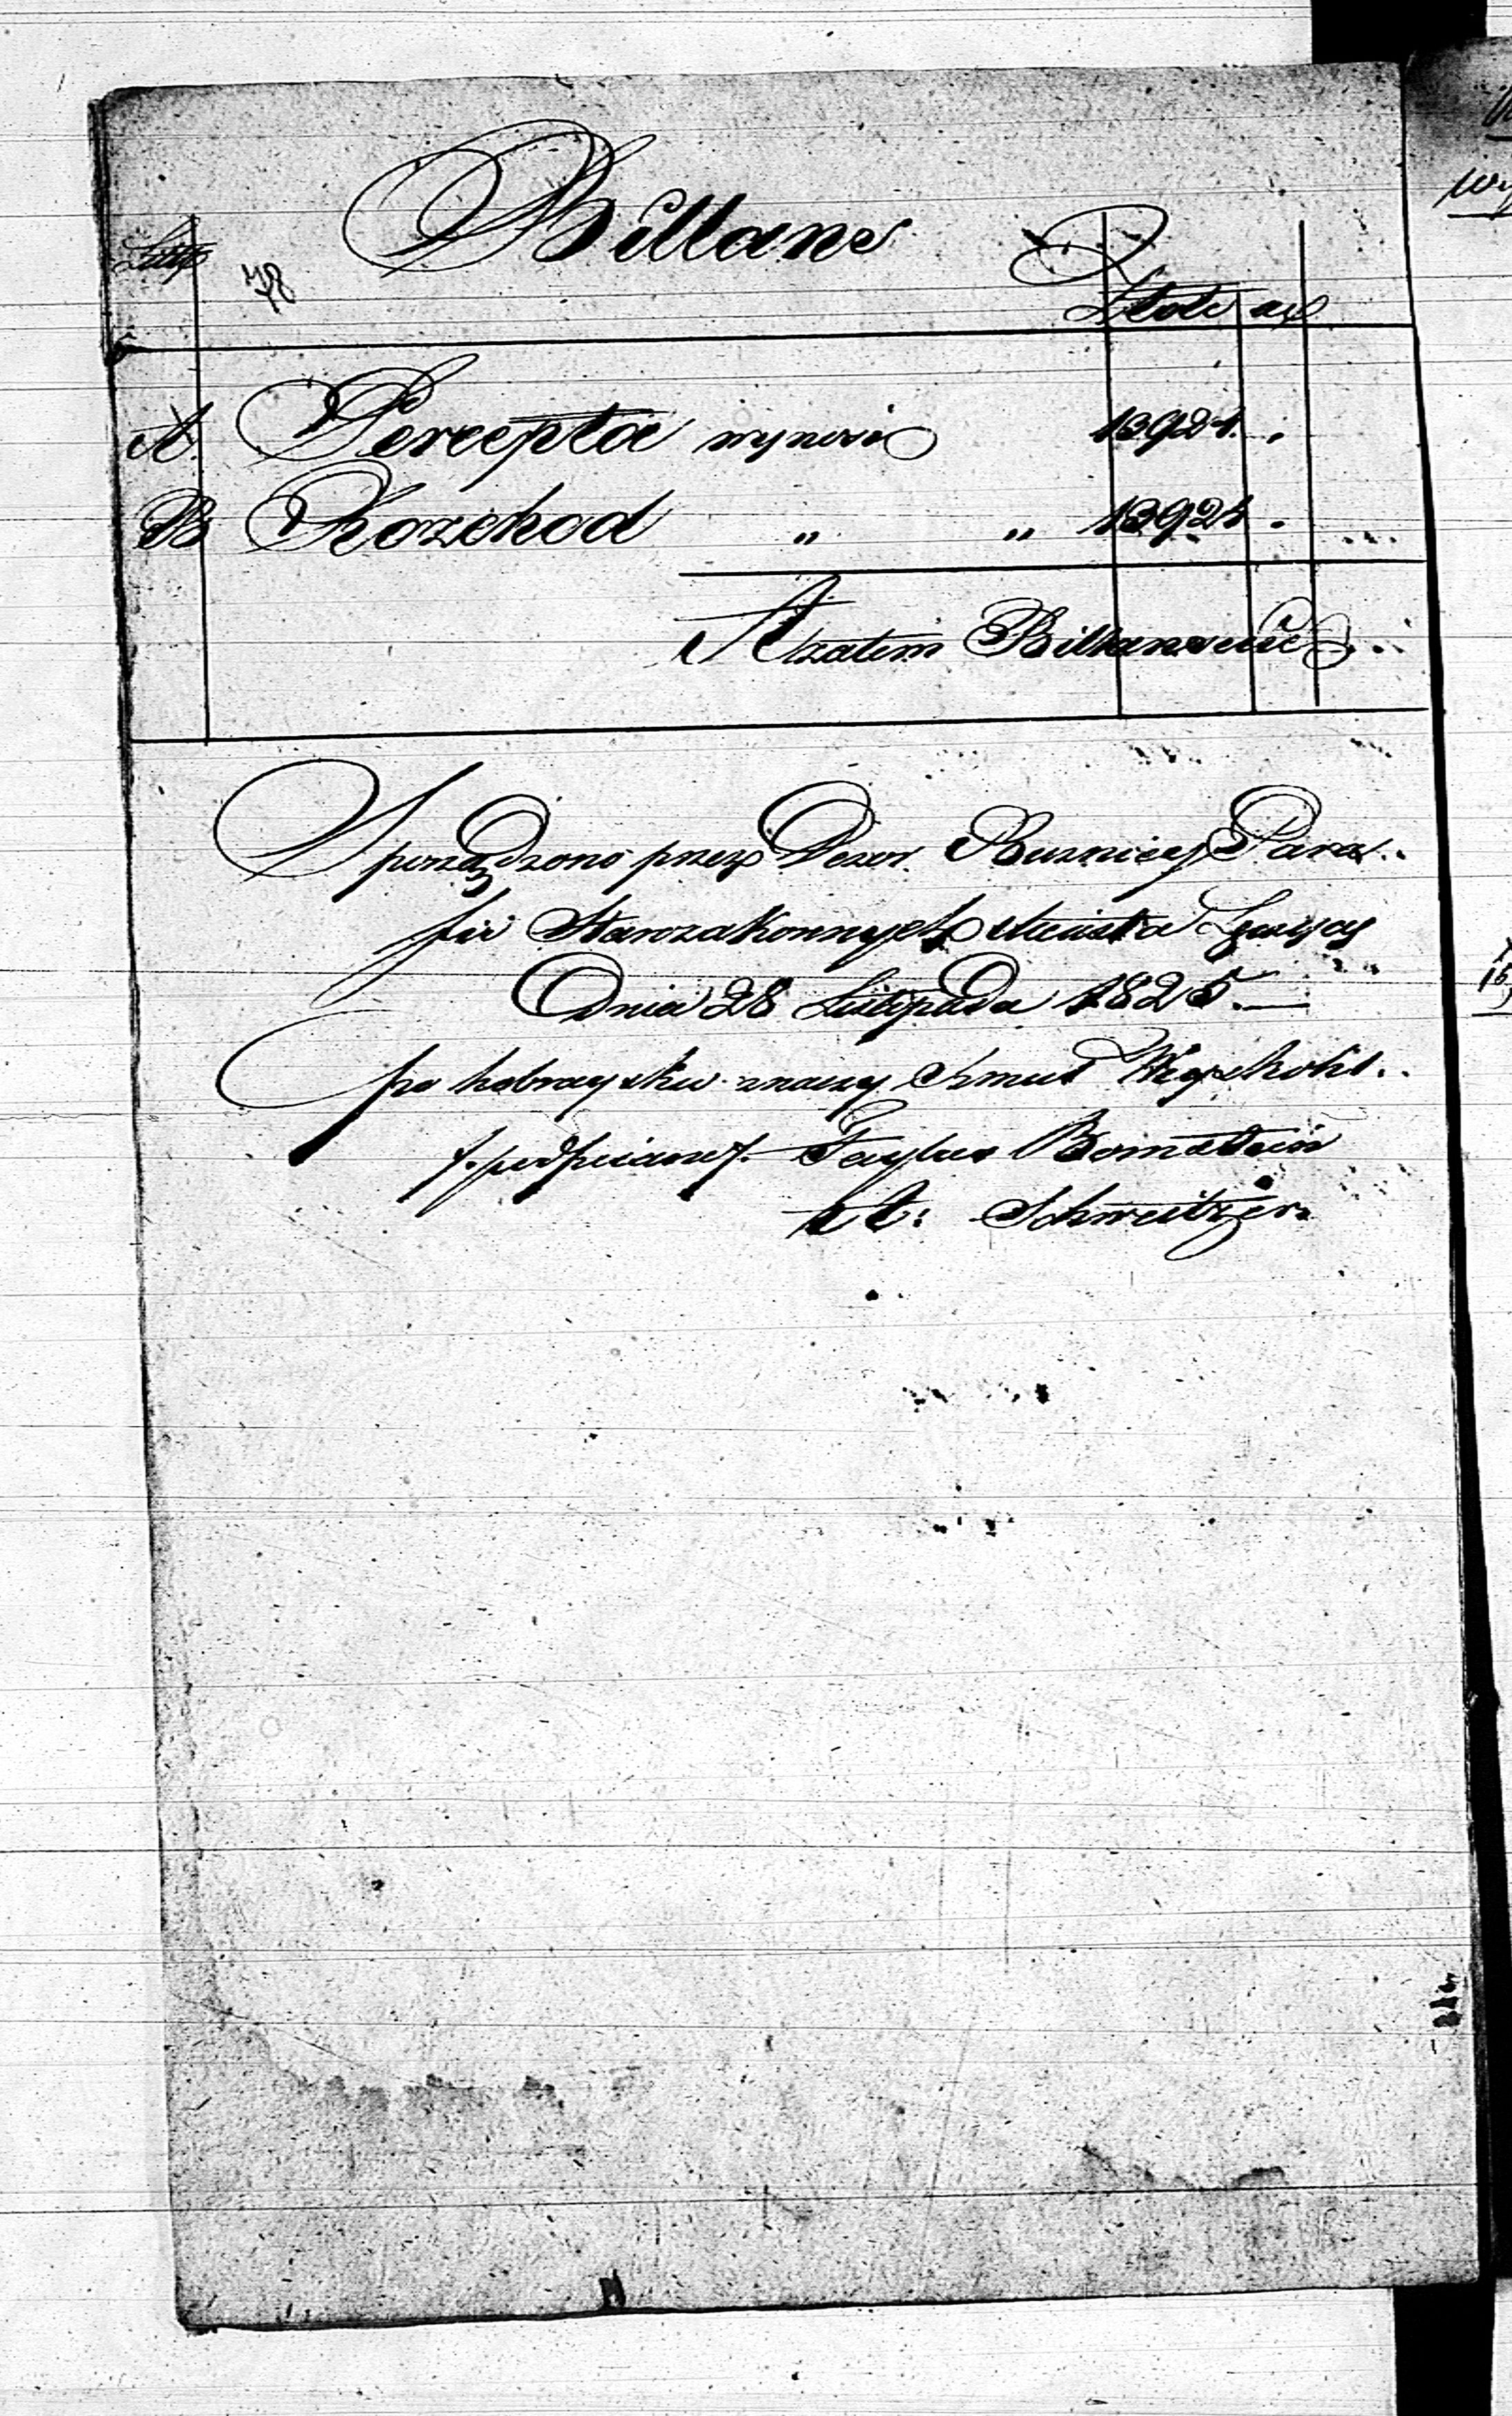 Billans
Złote gr
A. Percepta wynosi 13921. .
B Rozchod „ „ 13921 . ...
A zatem Billansuie ...
Sporządzono przez Dozor Buznicy Para..
fii Starozakonnych Miasta Łęczycy
Dnia 28 Listopada 1825. —
po hebraysku znaczy Smul
/. podpisano /. Faybus Bornstein
A: Schweitzer